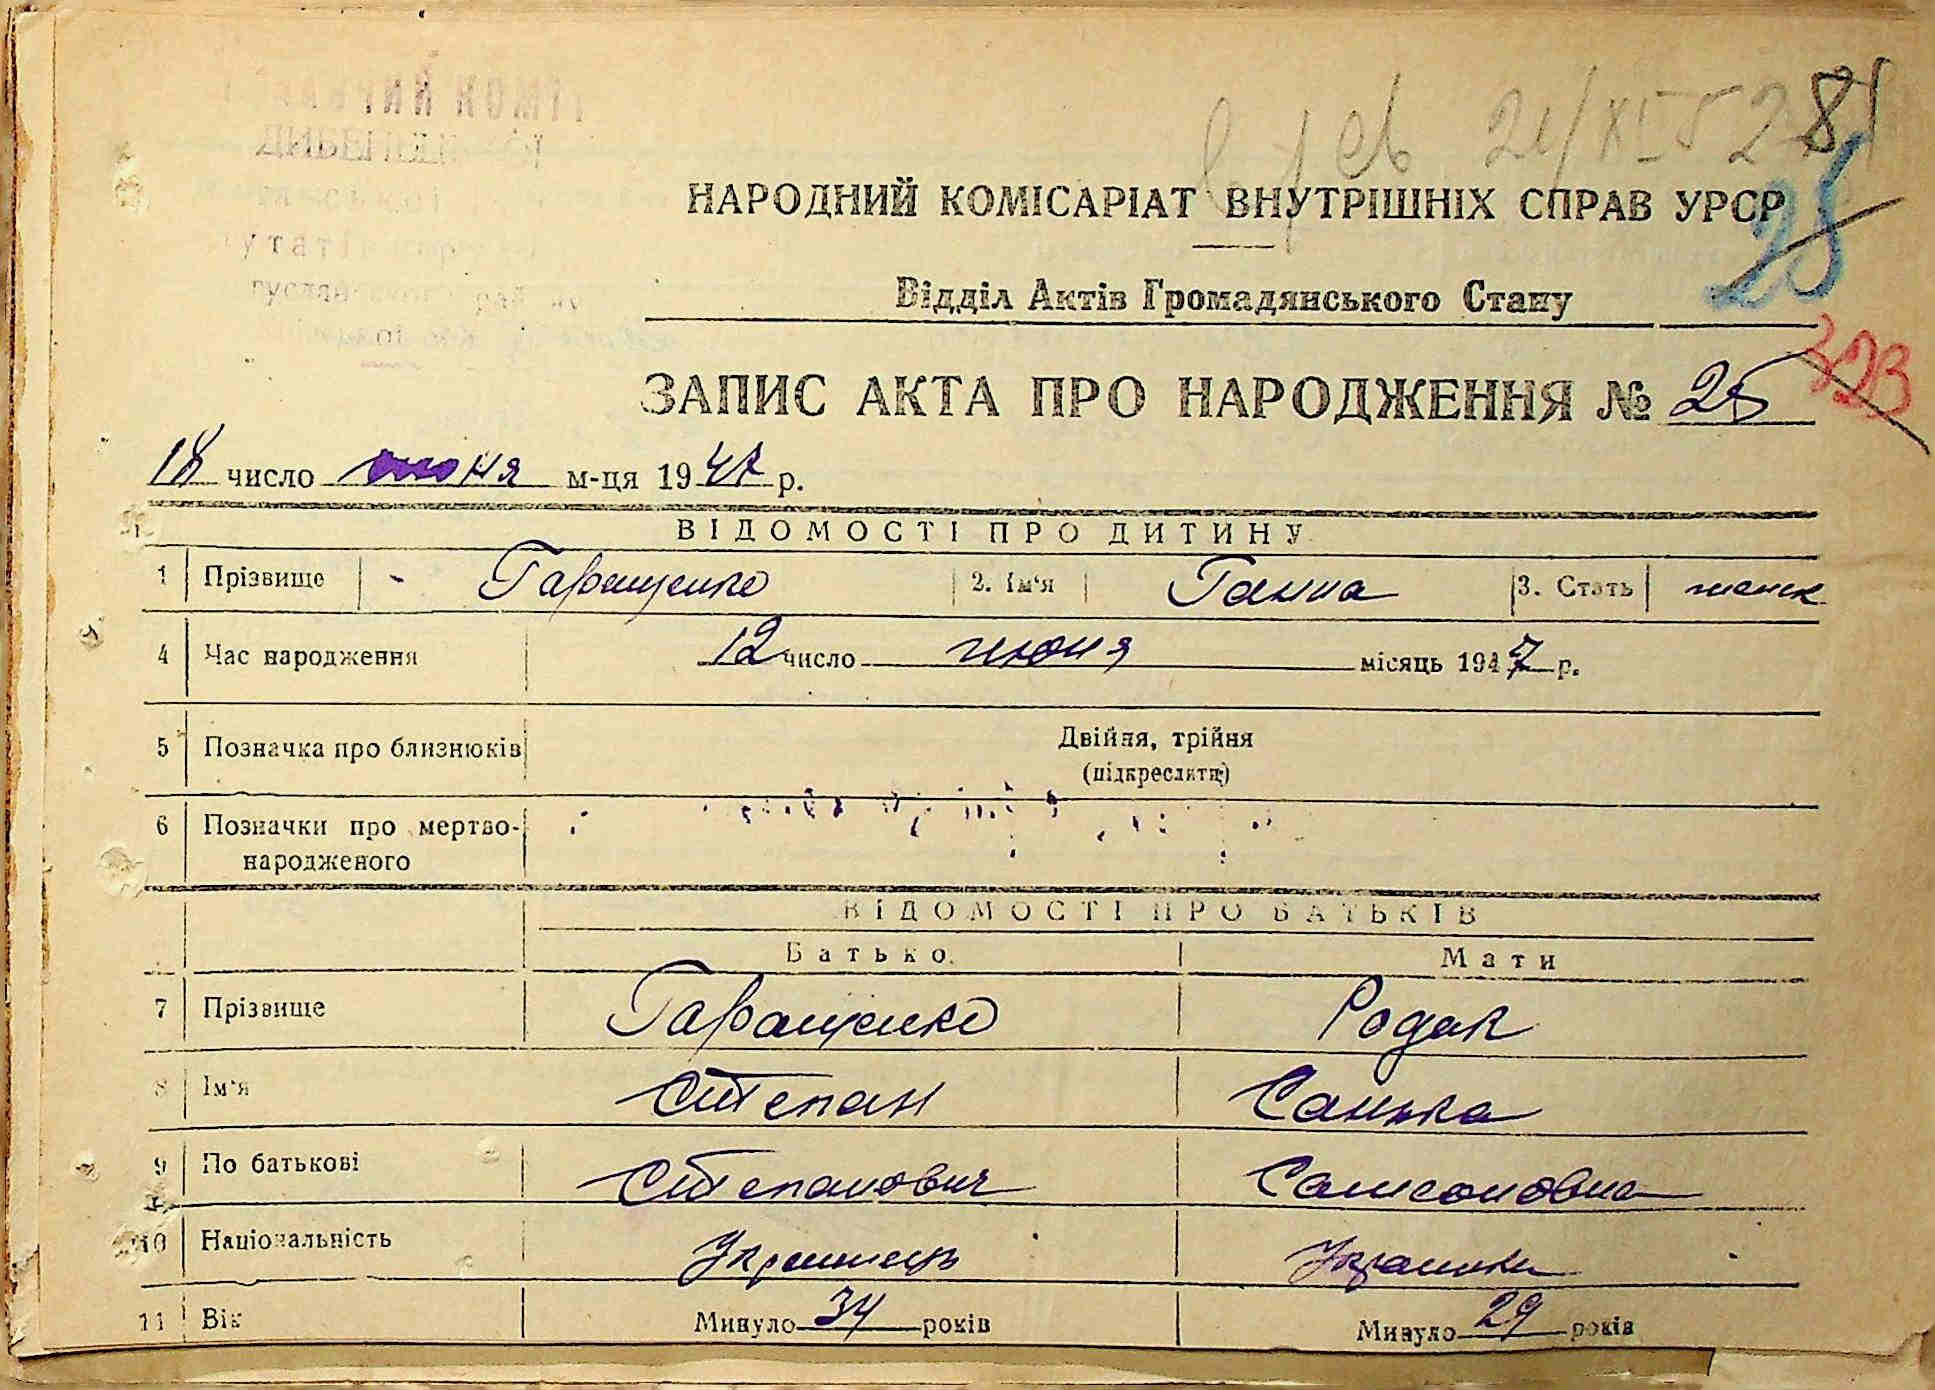 21/XI 52 81
НАРОДНИЙ КОМІСАРІАТ ВНУТРІШНІХ СПРАВ УРСР
28
Відділ Актів Громадянського Стану
323
ЗАПИС АКТА ПРО НАРОДЖЕННЯ № 25
18 число июня м-ця 1947 р.
ВІДОМОСТІ ПРО ДИТИНУ
1 Прізвище Гаращенко 2. Ім'я Ганна 3. Стать женск
4 Час народження 12 число июня місяць 1947 р.
5 Позначка про близнюків Двійня, трійня
(підкреслити)
6 Позначки про мертво-
народженого
ВІДОМОСТІ ПРО БАТЬКІВ
Батько Мати
7 Прізвище Гаращенко Родак
8 Ім'я Степан Санька
9 По батькові Степанович Самсоновна
10 Національність Украинець Украинка
11 Вік Минуло 34 років Минуло 29 років